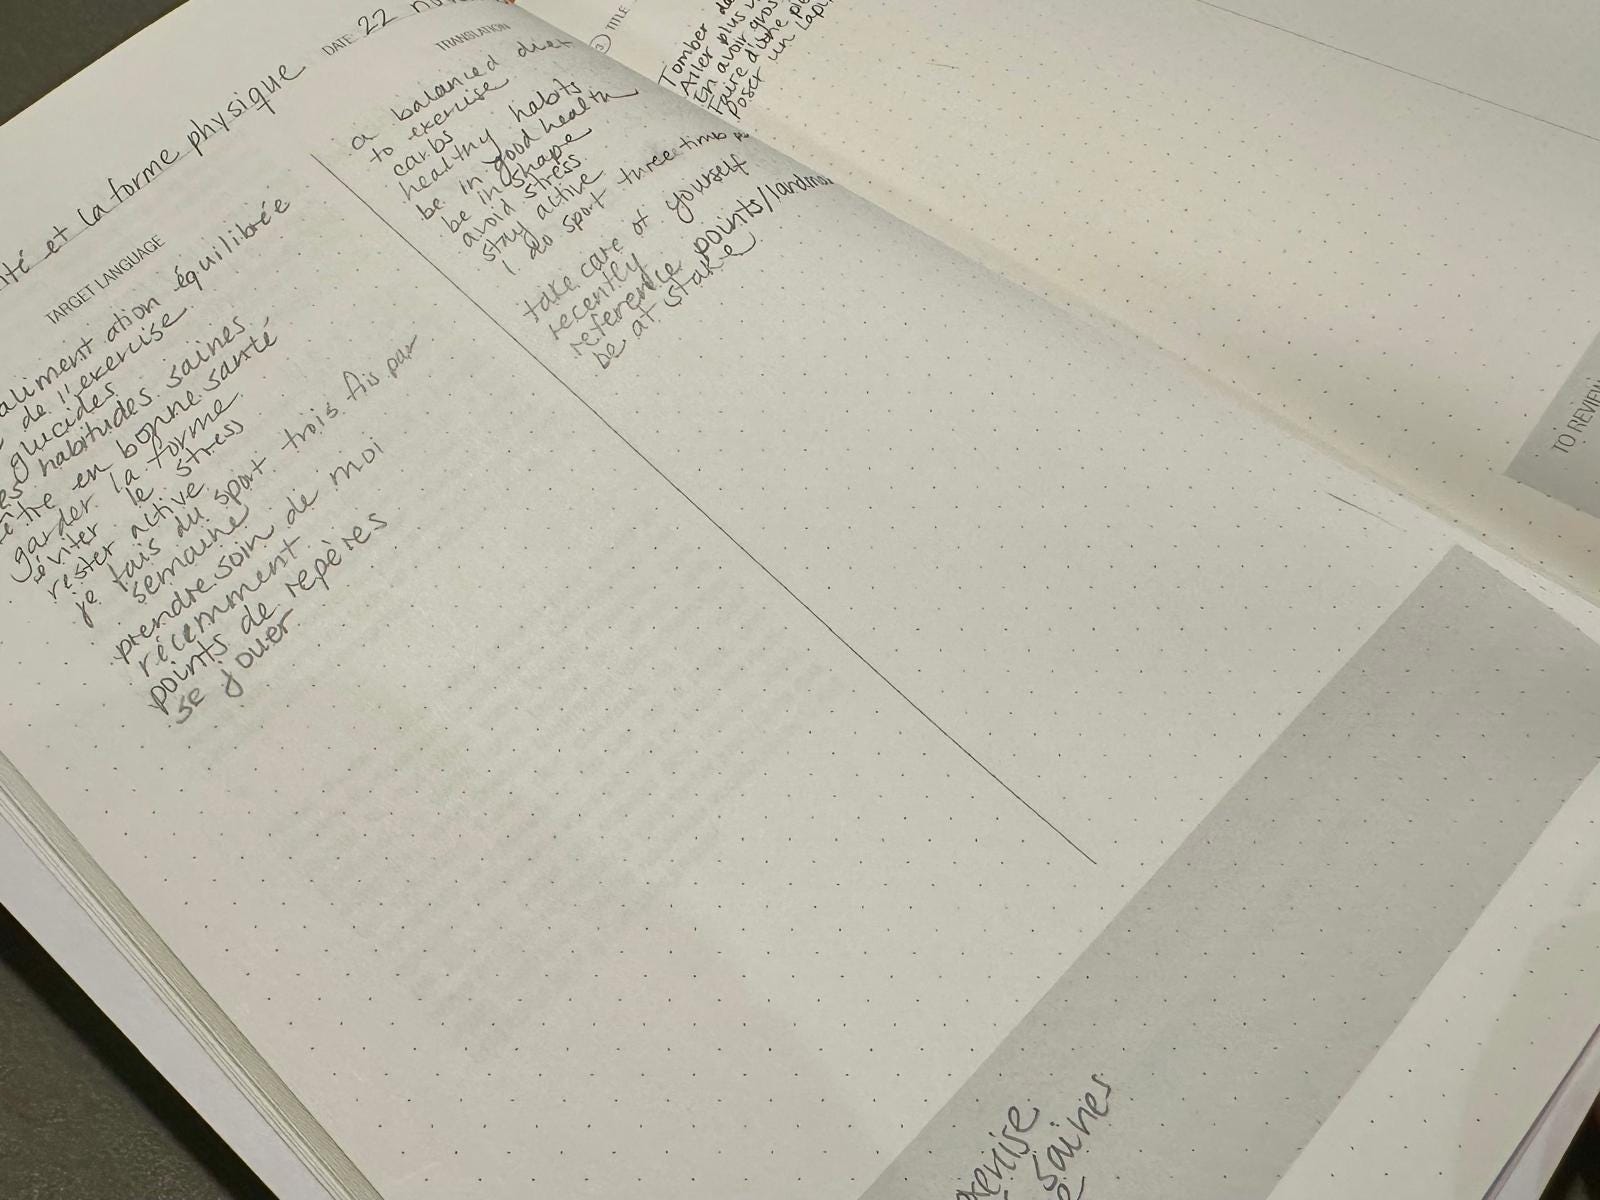 et la forme physique
DATE: 22
TARGET LANGUAGE
TRANSLATION
aliment ation équilibrée
de l'exercise
glucides
habitudes saines
être en bonne santé
garder la forme
éviter le stress
rester active
je fais du sport trois fois par
semaine
prendre soin de moi
récemment
points de repères
se jouer
a balanced diet
to exercise
carbs
healthy habits
be in good health
be in shape
avoid stress
stay active
I do sport three
take care of yourself
recently
reference points/
be at stake
3 TITLE
Tomber
Aller plus
En avoir gros
Faire d'une
Poser un
TO REVIEW
saines